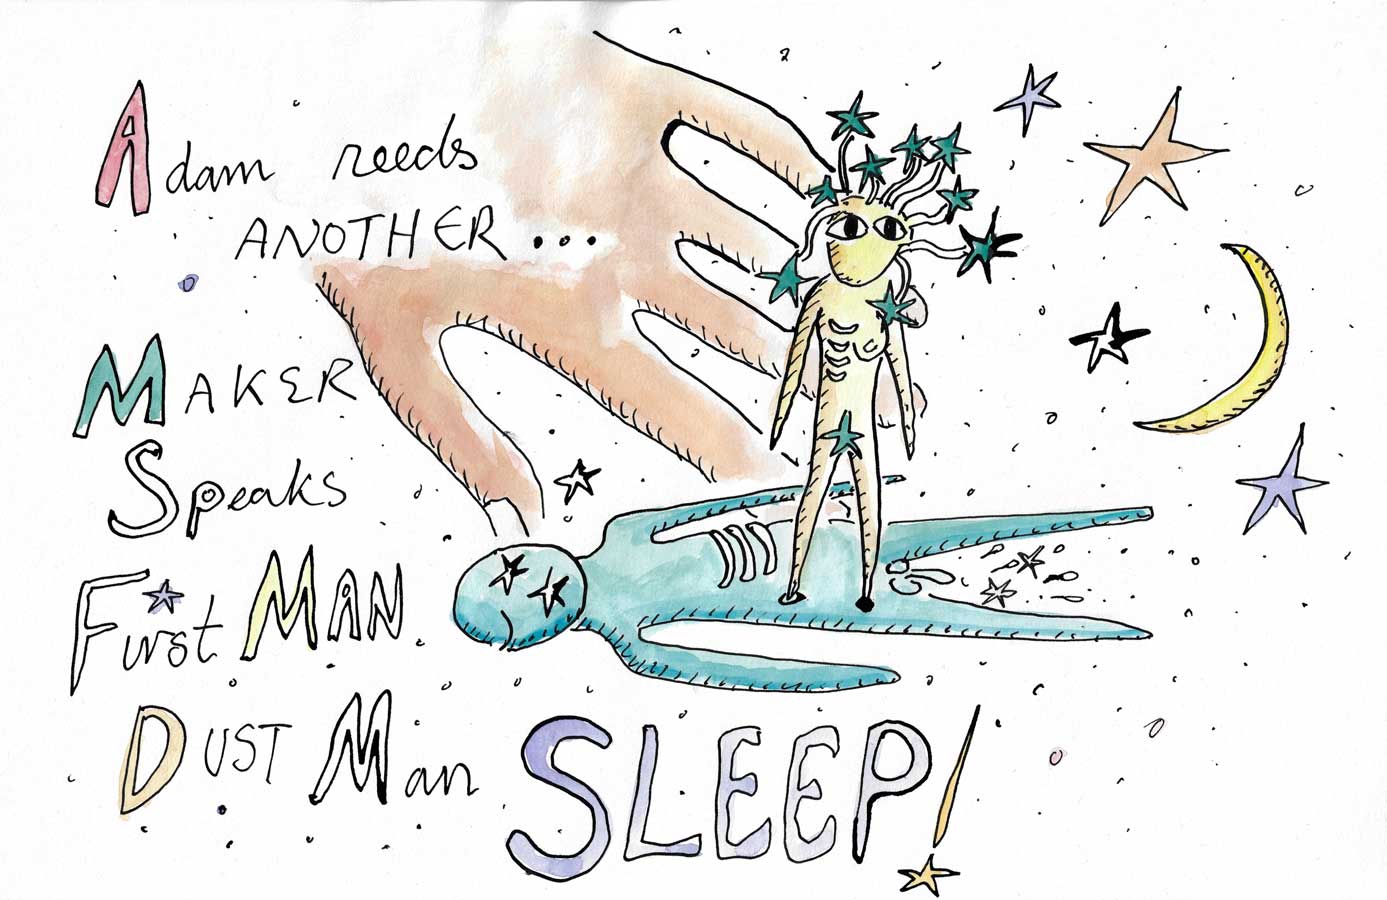 Adam needs
ANOTHER...
MAKER
Speaks
First MAN
DUST Man
SLEEP!